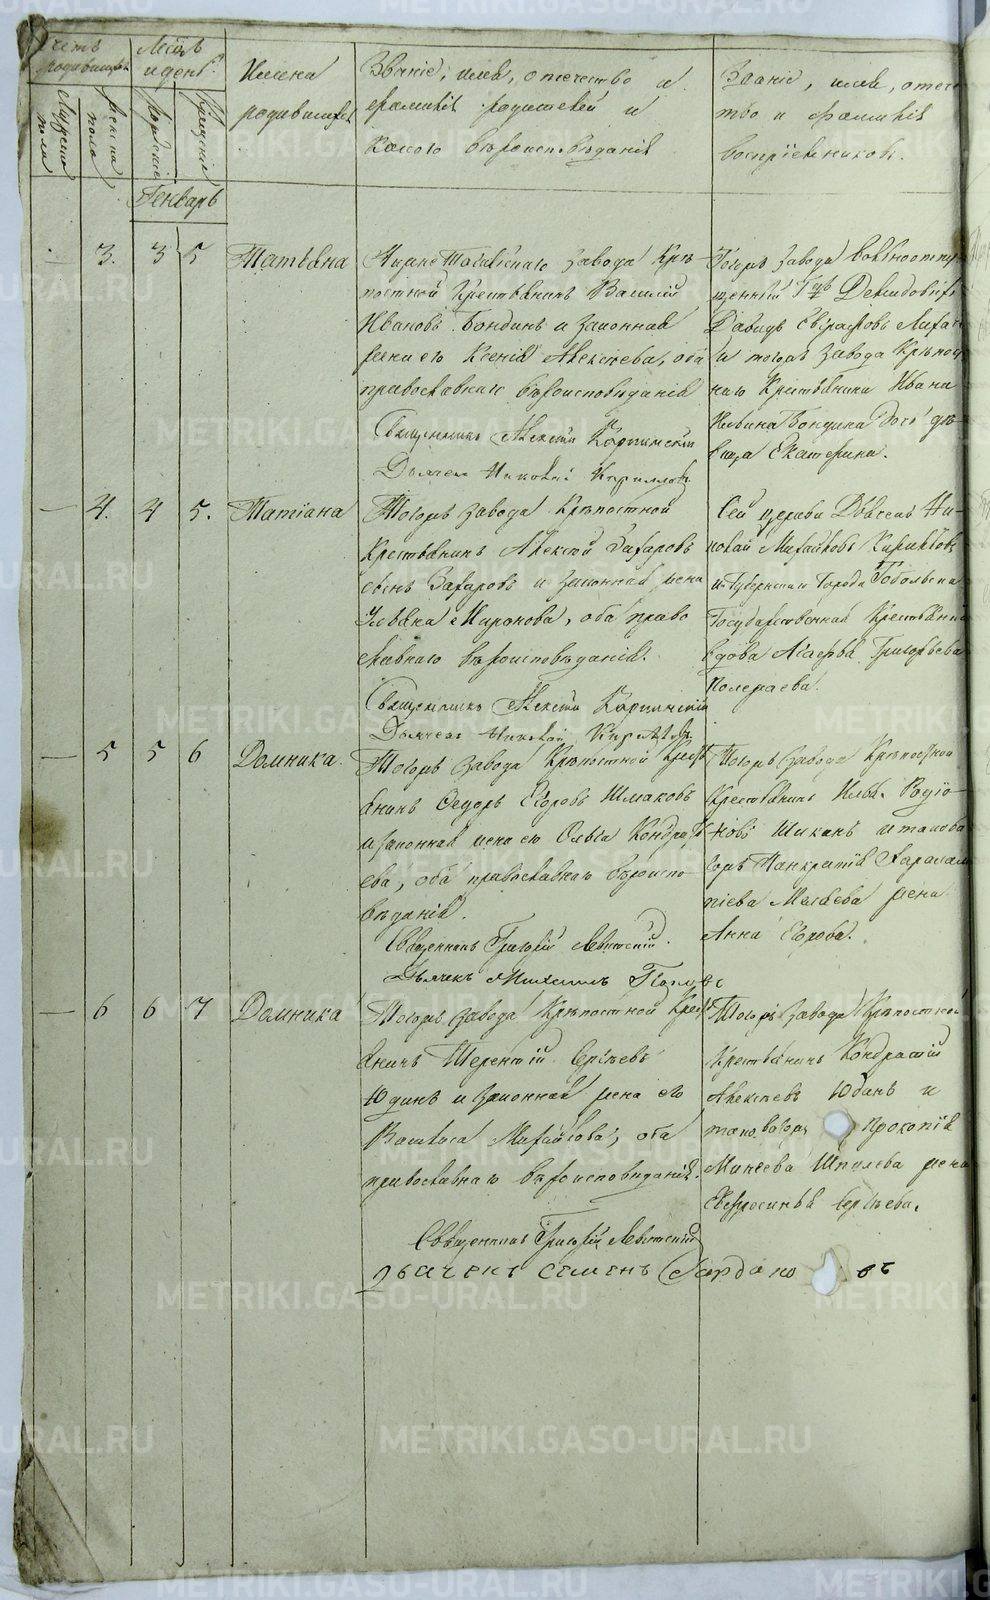 Счетъ родившихся
Мѣсяцъ и день
Имена
родившихся
Званіе, имя, отечество и
фамилія родителей и
какого вѣроисповѣданія
Званіе, имя, отече
тво и фамилія
воспріемниковъ.
Мужеска пола
Женска пола
Рожденія
Крещенія
Генварь
3. 3 5 Татьяна
Нижнетагильскаго завода крѣ
постной крестьянинъ Василій
Ивановъ Бондинъ и законная
жена его Ксенія Алексѣева, оба
православнаго вѣроисповѣданія
Священникъ Алексѣй Карпинскій
Дьячекъ Николай Кирилловъ
Тогожъ завода
щенный Гдъ Демидовыхъ
Давидъ
и тогожъ завода крѣпост
наго крестьянина Ивана
Ильина Бондина дочь дѣ-
вица Екатерина.
4. 4 5. Татіана
Тогожъ завода крѣпостной
крестьянинъ Алексѣй Захаровъ
сынъ Захаровъ и законная жена
Ульяна Миронова, оба право
славнаго вѣроисповѣданія.
Священникъ Алексѣй Карпинскій
Дьячекъ Николай Кирилловъ
Сей церкви Дьячекъ Ни-
колай Михайловъ Кирилловъ
и Губернскаго Города Тобольска
Государственная крестьянка
вдова Агафья Григорьева
5 5 6 Домника.
Тогожъ завода крѣпостной крест
янинъ Ѳедоръ Егоровъ Шмаковъ
и законная жена его Ольга Кондрать
ева, оба православнаго вѣроиспо
вѣданія.
Священникъ Григорій Левитскій.
Дьячекъ Михаилъ Поповъ
Тогожъ завода крѣпостной
крестьянинъ Илья Родіо-
новъ Шиканъ и таково
гожъ Панкратія Харалам
піева Маляева жена
Анна Егорова.
6 6 7 Домника
Тогожъ завода крѣпостной крест
янинъ Терентій Сергѣевъ
Юдинъ и законная жена его
Василиса Михайлова, оба
православнаго вѣроисповѣданія.
Священникъ Григорій Левитскій
дьячекъ семенъ
Тогожъ завода крѣпостной
крестьянинъ Кондратій
Алексѣевъ Юдинъ и
таковогожъ Прокопія
Минѣева Шпилева жена
Евфросинья Сергѣева.
METRIKI.GASO-URAL.RU